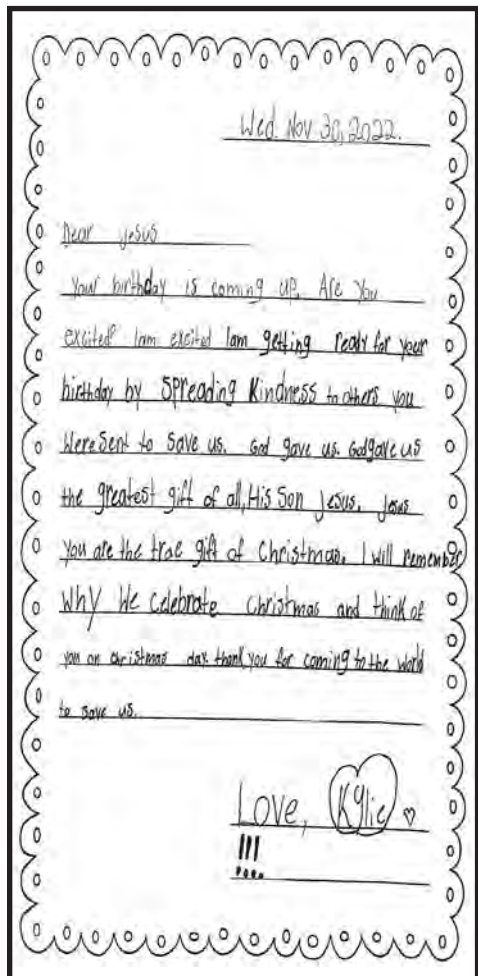 Wed. Nov 30, 2022.
Dear Jesus
Your birthday is coming up. Are You
excited? Iam excited Iam getting ready for your
birthday by spreading kindness to others you
Were sent to save us. God gave us. God gave us
the greatest gift of all, His Son Jesus. Jesus
you are the true gift of Christmas. I will remember
Why We celebrate Christmas and think of
you on christmas day. thank you for coming to the world
to save us.
Love, Kylie ♡
!!!